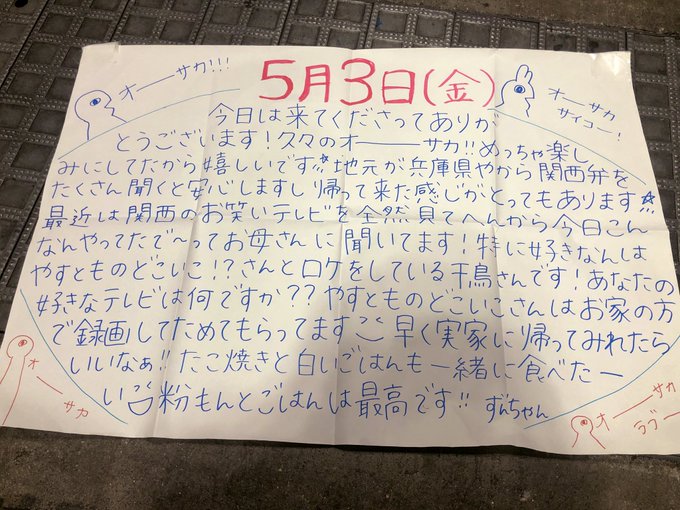 5月3日(金)
オーサカ!!!
オーサカ
サイコー!
今日は来てくださってありが
とうございます!久々のオーサカ!!めっちゃ楽し
みにしてたから嬉しいです 地元が兵庫県やから関西弁を
たくさん聞くと安心しますし帰って来た感じがとってもあります
最近は関西のお笑いテレビを全然見てへんから今日こん
なんやってたで〜ってお母さんに聞いてます!特に好きなんは
やすとものどこいこ!?さんとロケをしている千鳥さんです!あなたの
好きなテレビは何ですか??やすとものどこいこさんはお家の方
で録画してためてもらってます 早く実家に帰ってみれたら
いいなぁ!!たこ焼きと白いごはんも一緒に食べたー
い 粉もんとごはんは最高です!! ずんちゃん
オーサカ
オーサカ
ラブー